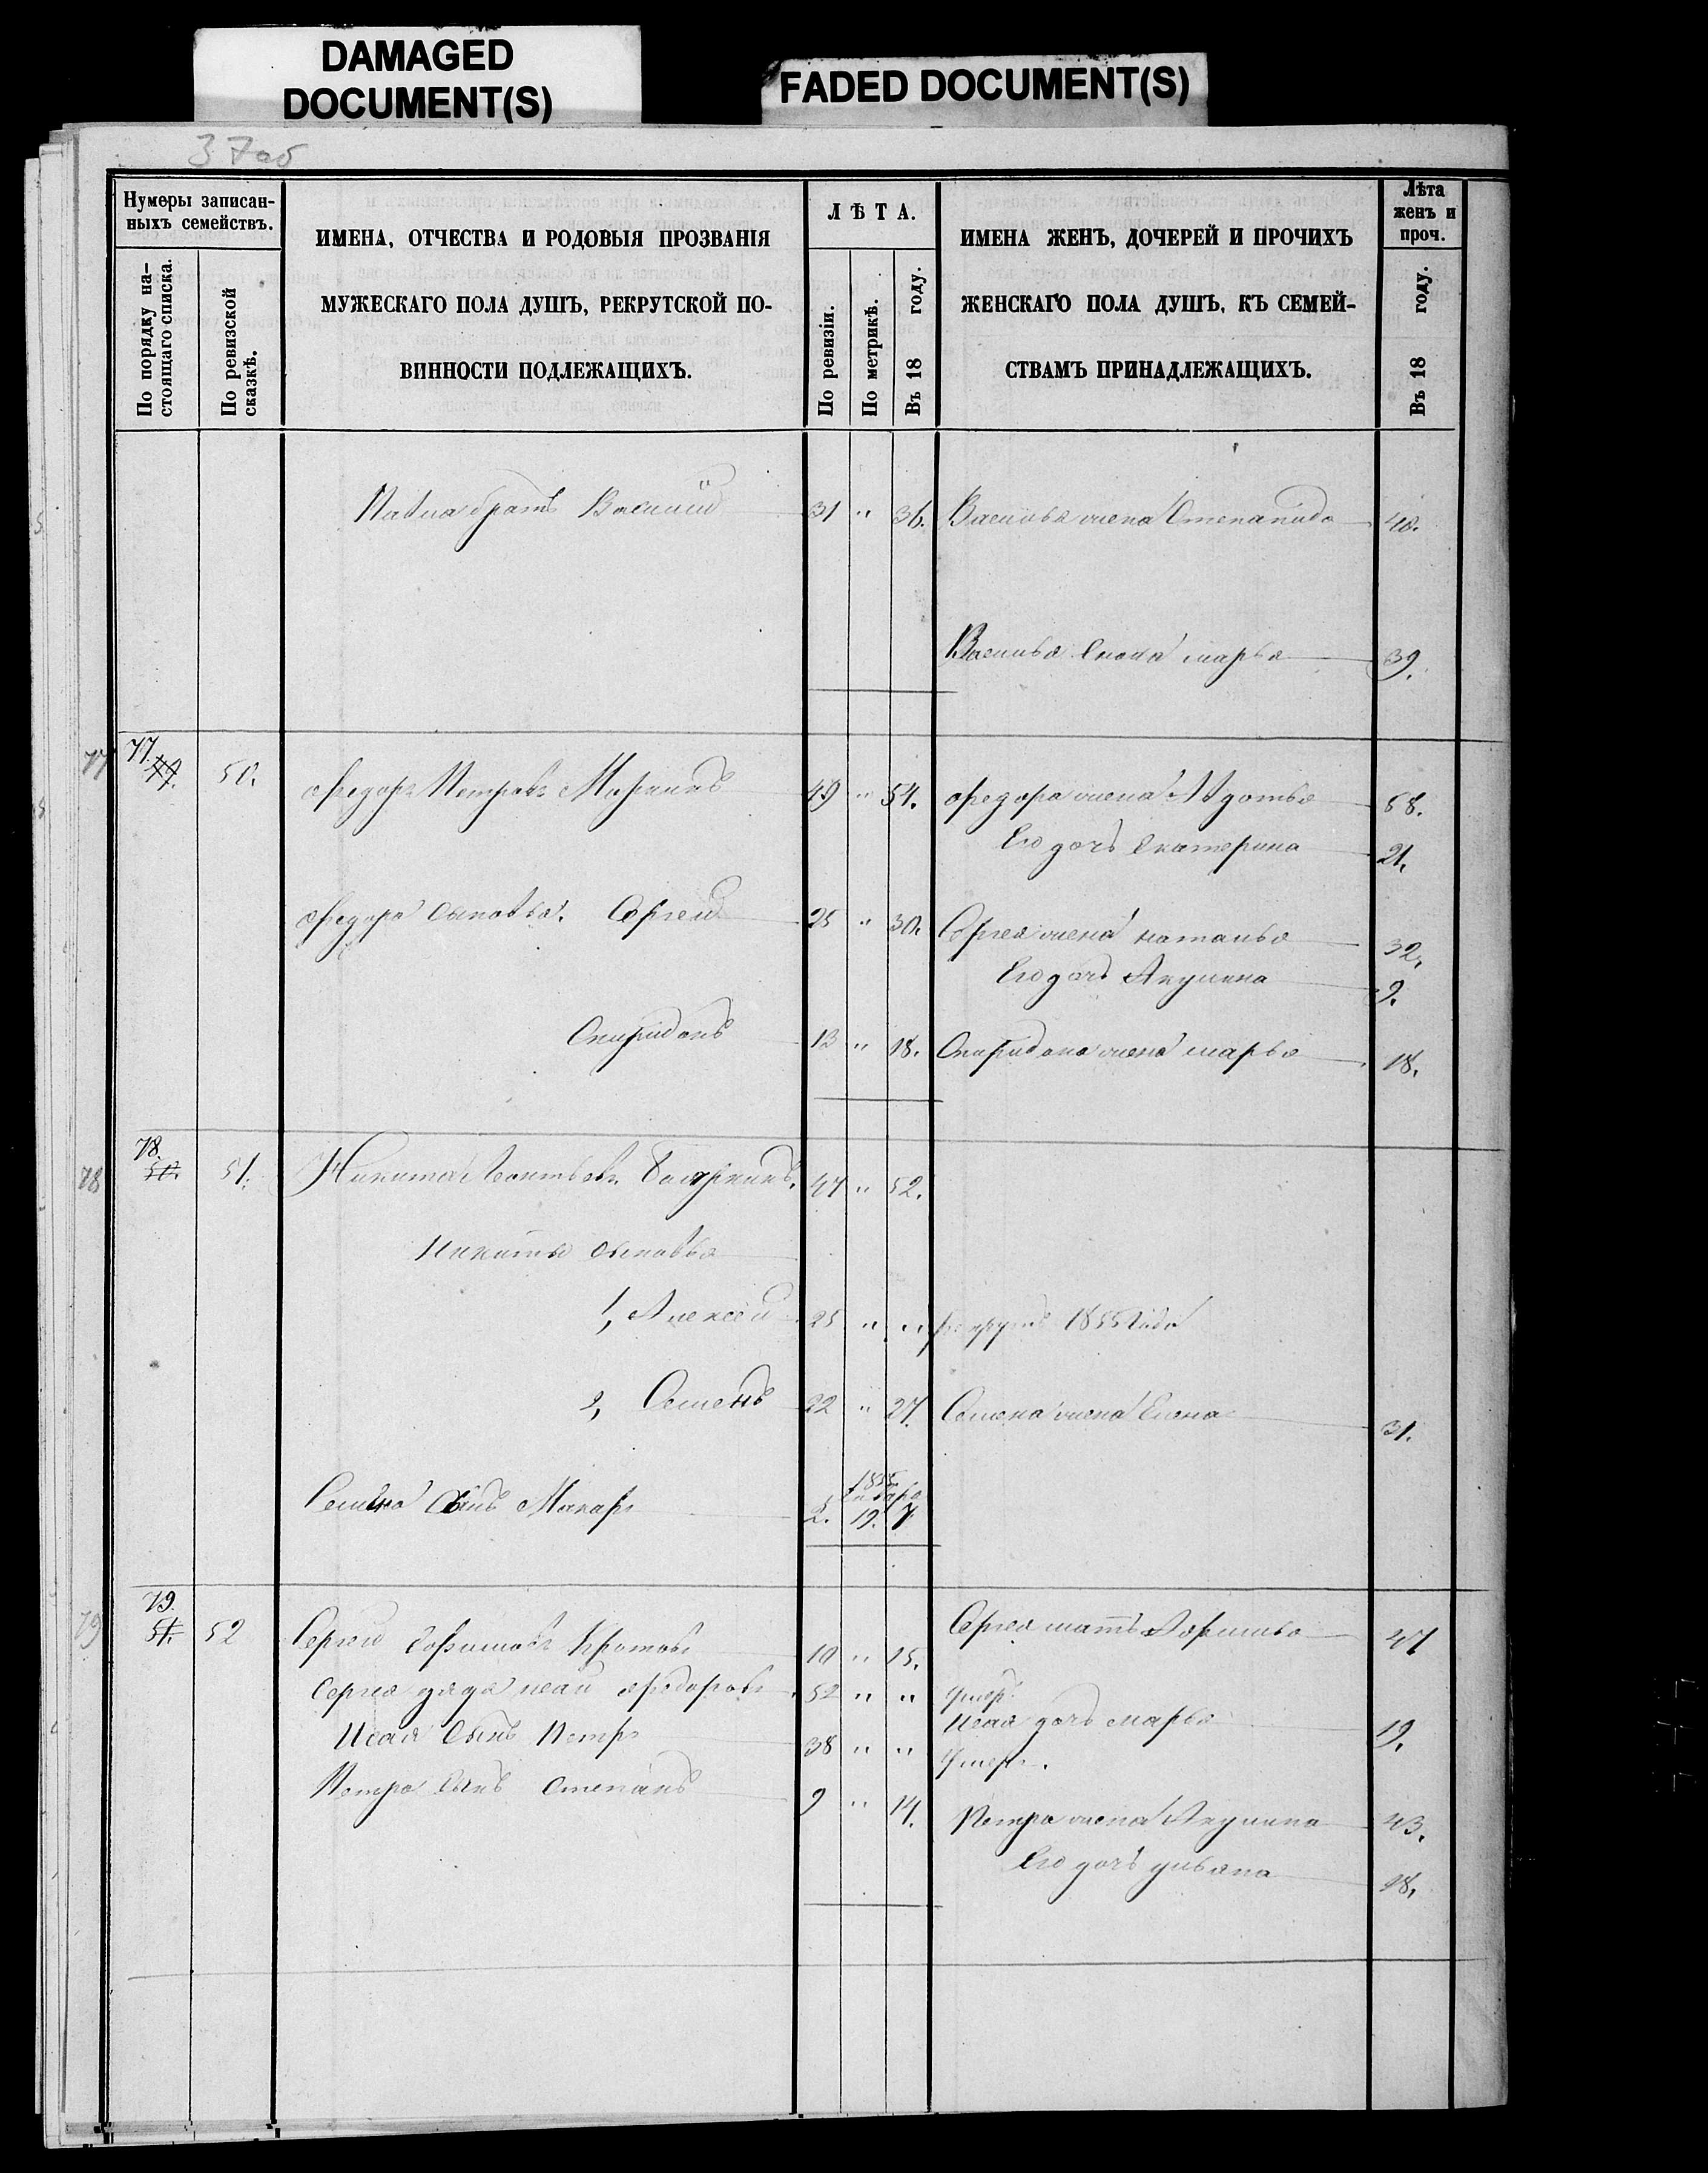 DAMAGED
DOCUMENT(S)
FADED DOCUMENT(S)
37об
Нумеры записан-
ныхъ семействъ.
По порядку на-
стоящаго списка.
По ревизской
сказкѣ.
ИМЕНА, ОТЧЕСТВА И РОДОВЫЯ ПРОЗВАНІЯ
МУЖЕСКАГО ПОЛА ДУШЪ, РЕКРУТСКОЙ ПО-
ВИННОСТИ ПОДЛЕЖАЩИХЪ.
ЛѢТА.
По ревизіи.
По метрикѣ.
Въ 18 году.
ИМЕНА ЖЕНЪ, ДОЧЕРЕЙ И ПРОЧИХЪ
ЖЕНСКАГО ПОЛА ДУШЪ, КЪ СЕМЕЙ-
СТВАМЪ ПРИНАДЛЕЖАЩИХЪ.
Лѣта
женъ и
проч.
Въ 18 году.
братъ Василий 31 " 36. Василья жена Степанида 40.
Василья сноха марья 39.
77 77. 50. Федоръ Петровъ 49 " 54. Федора жена Авдотья 58.
Его дочь Екатерина 21.
Федора сыновья. Сергей 25 " 30. Сергея жена наталья 32.
Его дочь Акулина 9.
Спиридонъ 13 " 18. Спиридона жена марья 18.
78 78. 50. 51. Никита Леонтьевъ 47 " 52.
Никиты сыновья
1, Алексей 25 " " рекрутъ 1855 года
2, Семенъ 22 " 27. Семена жена Елена 31.
Семена сынъ Макаръ 2. января 19. 7
79 79. 51. 52 Сергей Кротовъ 10 " 15. Сергея мать 47
Сергея дядя исай Федоровъ 52 " " умеръ
Исая дочь марья 19.
Исая сынъ Петръ 38 " " умеръ.
Петра сынъ Степанъ 9 " 14. Петра жена Акулина 43.
Его дочь ульяна 18.